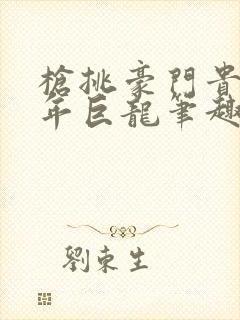 槍挑豪門貴
年巨龍筆趣
劉東生